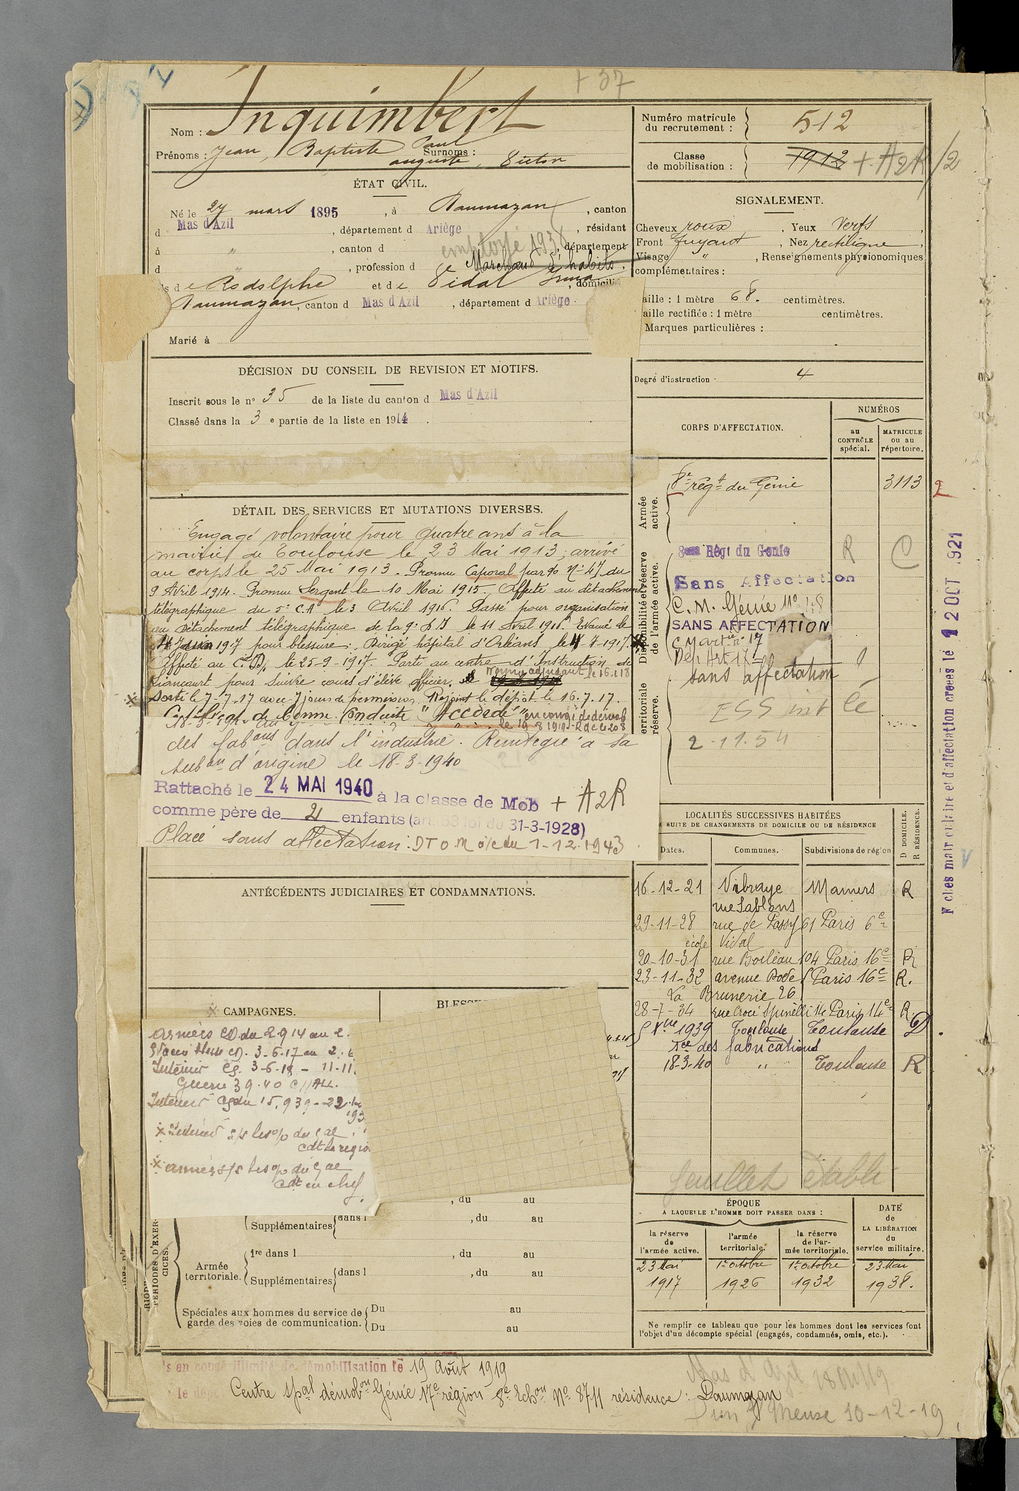 + 37
Nom : Inquimbert
Prénoms : Jean, Baptiste Paul
Surnoms : auguste, Victor
ÉTAT CIVIL.
Né le 27 mars 1895, à Daumazan, canton
d Mas d'Azil, département d Ariège, résidant
à " , canton d , département
employé 1938
d , profession d Marchand d'habits
fils de Rodolphe et de Vidal Irma, domicilié
Daumazan, canton Mas d'Azil, département d Ariège.
Marié à
DÉCISION DU CONSEIL DE REVISION ET MOTIFS.
Inscrit sous le n° 35 de la liste du canton d Mas d'Azil
Classé dans la 3e partie de la liste en 1914.
DÉTAIL DES SERVICES ET MUTATIONS DIVERSES.
Engagé volontaire pour quatre ans à la
mairie de Toulouse le 23 Mai 1913, arrivé
au corps le 25 Mai 1913. Promu Caporal par go N° 47 du
9 Avril 1914. Promu Sergent le 10 Mai 1915. Affecté au détachement
télégraphique du 5e C.A. le 3 Avril 1916. Passé pour organisation
au détachement télégraphique de la 9e D.I le 11 Avril 1916. Evacué le
1917 pour blessure. Dirigé hôpital d'Orléans le 4-4-1917.
Affecté au le 25-9-1917. Parti au centre d'Instruction de
Liancourt pour suivre cours d'élève officier. Nommé adjudant le 16.1.18
Sorti le 7-7-17 avec 7 jours de permission. Rejoint le dépôt le 16.7.17.
Certificat de bonne Conduite "Accordé"
des fabons dans l'industrie. Réintégré à sa
subon d'origine le 18-3-1940
Rattaché le 24 MAI 1940 à la classe de Mob + A2R
comme père de 2 enfants (art. 58 loi du 31-3-1928)
Placé sans affectation : DTO Mole du 1-12.1943
ANTÉCÉDENTS JUDICIAIRES ET CONDAMNATIONS.
CAMPAGNES.
BLESS
armées CD du 2 9 14 au 2.
Intérieur CS. 3-6-19 - 11-11
Guerre 39.40 C/ALL.
Intérieur CS du 15,939 - 22
Intérieur s/s les o/o du Gal
cdt la régio
armées s/s les o/o du Gal
Cdt en chef
, du au
Supplémentaires { dans l , du au
PÉRIODES D'EXERCICES.
Armée territoriale.
1re dans l , du au
Supplémentaires { dans l , du au
Spéciales aux hommes du service de garde des voies de communication.
Du au
Du au
Numéro matricule du recrutement : 512
Classe de mobilisation : 1912 + A2R/2
SIGNALEMENT.
Cheveux roux, Yeux Verts,
Front fuyant, Nez rectiligne,
Visage " , Renseignements physionomiques
complémentaires :
Taille : 1 mètre 68. centimètres.
Taille rectifiée : 1 mètre centimètres.
Marques particulières :
Degré d'instruction : 4
CORPS D'AFFECTATION.
NUMÉROS
au CONTRÔLE spécial.
MATRICULE ou au répertoire.
Armée active.
8e régt du Génie 3113 2
Disponibilité et réserve de l'armée active.
8eme Régt du Genie R C
Sans Affectation
C. M. Génie No 18
SANS AFFECTATION
sans affectation
territoriale réserve.
2-11.54
Fiches matriculaire et d'affectation créées le 12 OCT. 1921
LOCALITÉS SUCCESSIVES HABITÉES
SUITE DE CHANGEMENTS DE DOMICILE OU DE RÉSIDENCE
Dates. Communes. Subdivisions de région
D DOMICILE.
R RÉSIDENCE.
16-12-21 Vibraye Mamers R
rue Sablons
29-11-28 rue de Passy 61 Paris 6e
école Vidal
20-10-31 rue Boileau 104 Paris 16e R
23-11-32 avenue Dode Paris 16e R.
La Brunerie 26
28-7-34 rue Croce Spinelli 14 Paris 14e R
9bre 1939 Toulouse Toulouse D
des fabrications
18.3.40 " Toulouse R
feuillet établi
ÉPOQUE
A LAQUELLE L'HOMME DOIT PASSER DANS :
DATE de LA LIBÉRATION du service militaire.
la réserve de l'armée active.
l'armée territoriale.
la réserve de l'armée territoriale.
23 Mai 1917
1er octobre 1926
1er octobre 1932
23 Mai 1938.
Ne remplir ce tableau que pour les hommes dont les services font
l'objet d'un décompte spécial (engagés, condamnés, omis, etc.).
en congé illimité de démobilisation le 19 Août 1919
Centre spal démobon Génie 17e région 8e Echon No 8711 résidence : Daumazan
Mas d'Azil
Dun s/ Meuse 10-12-19